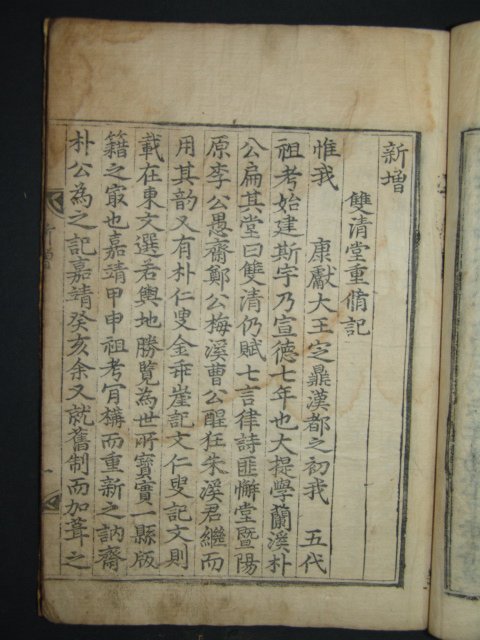 新增
雙清堂重脩記
惟我　康獻大王定鼎漢都之初我　五代
祖考始建斯宇乃宣德七年也大提學蘭溪朴
公扁其堂曰雙清仍賦七言律詩匪懈堂暨陽
原李公愚齋鄭公梅溪曹公醒狂朱溪君繼而
用其韵又有朴仁叟金乖崖記文仁叟記文則
載在東文選若輿地勝覽為世所寶實一縣版
籍之㝡也嘉靖甲申祖考肎構而重新之訥齋
朴公為之記嘉靖癸亥余又就舊制而加葺之
新增
一